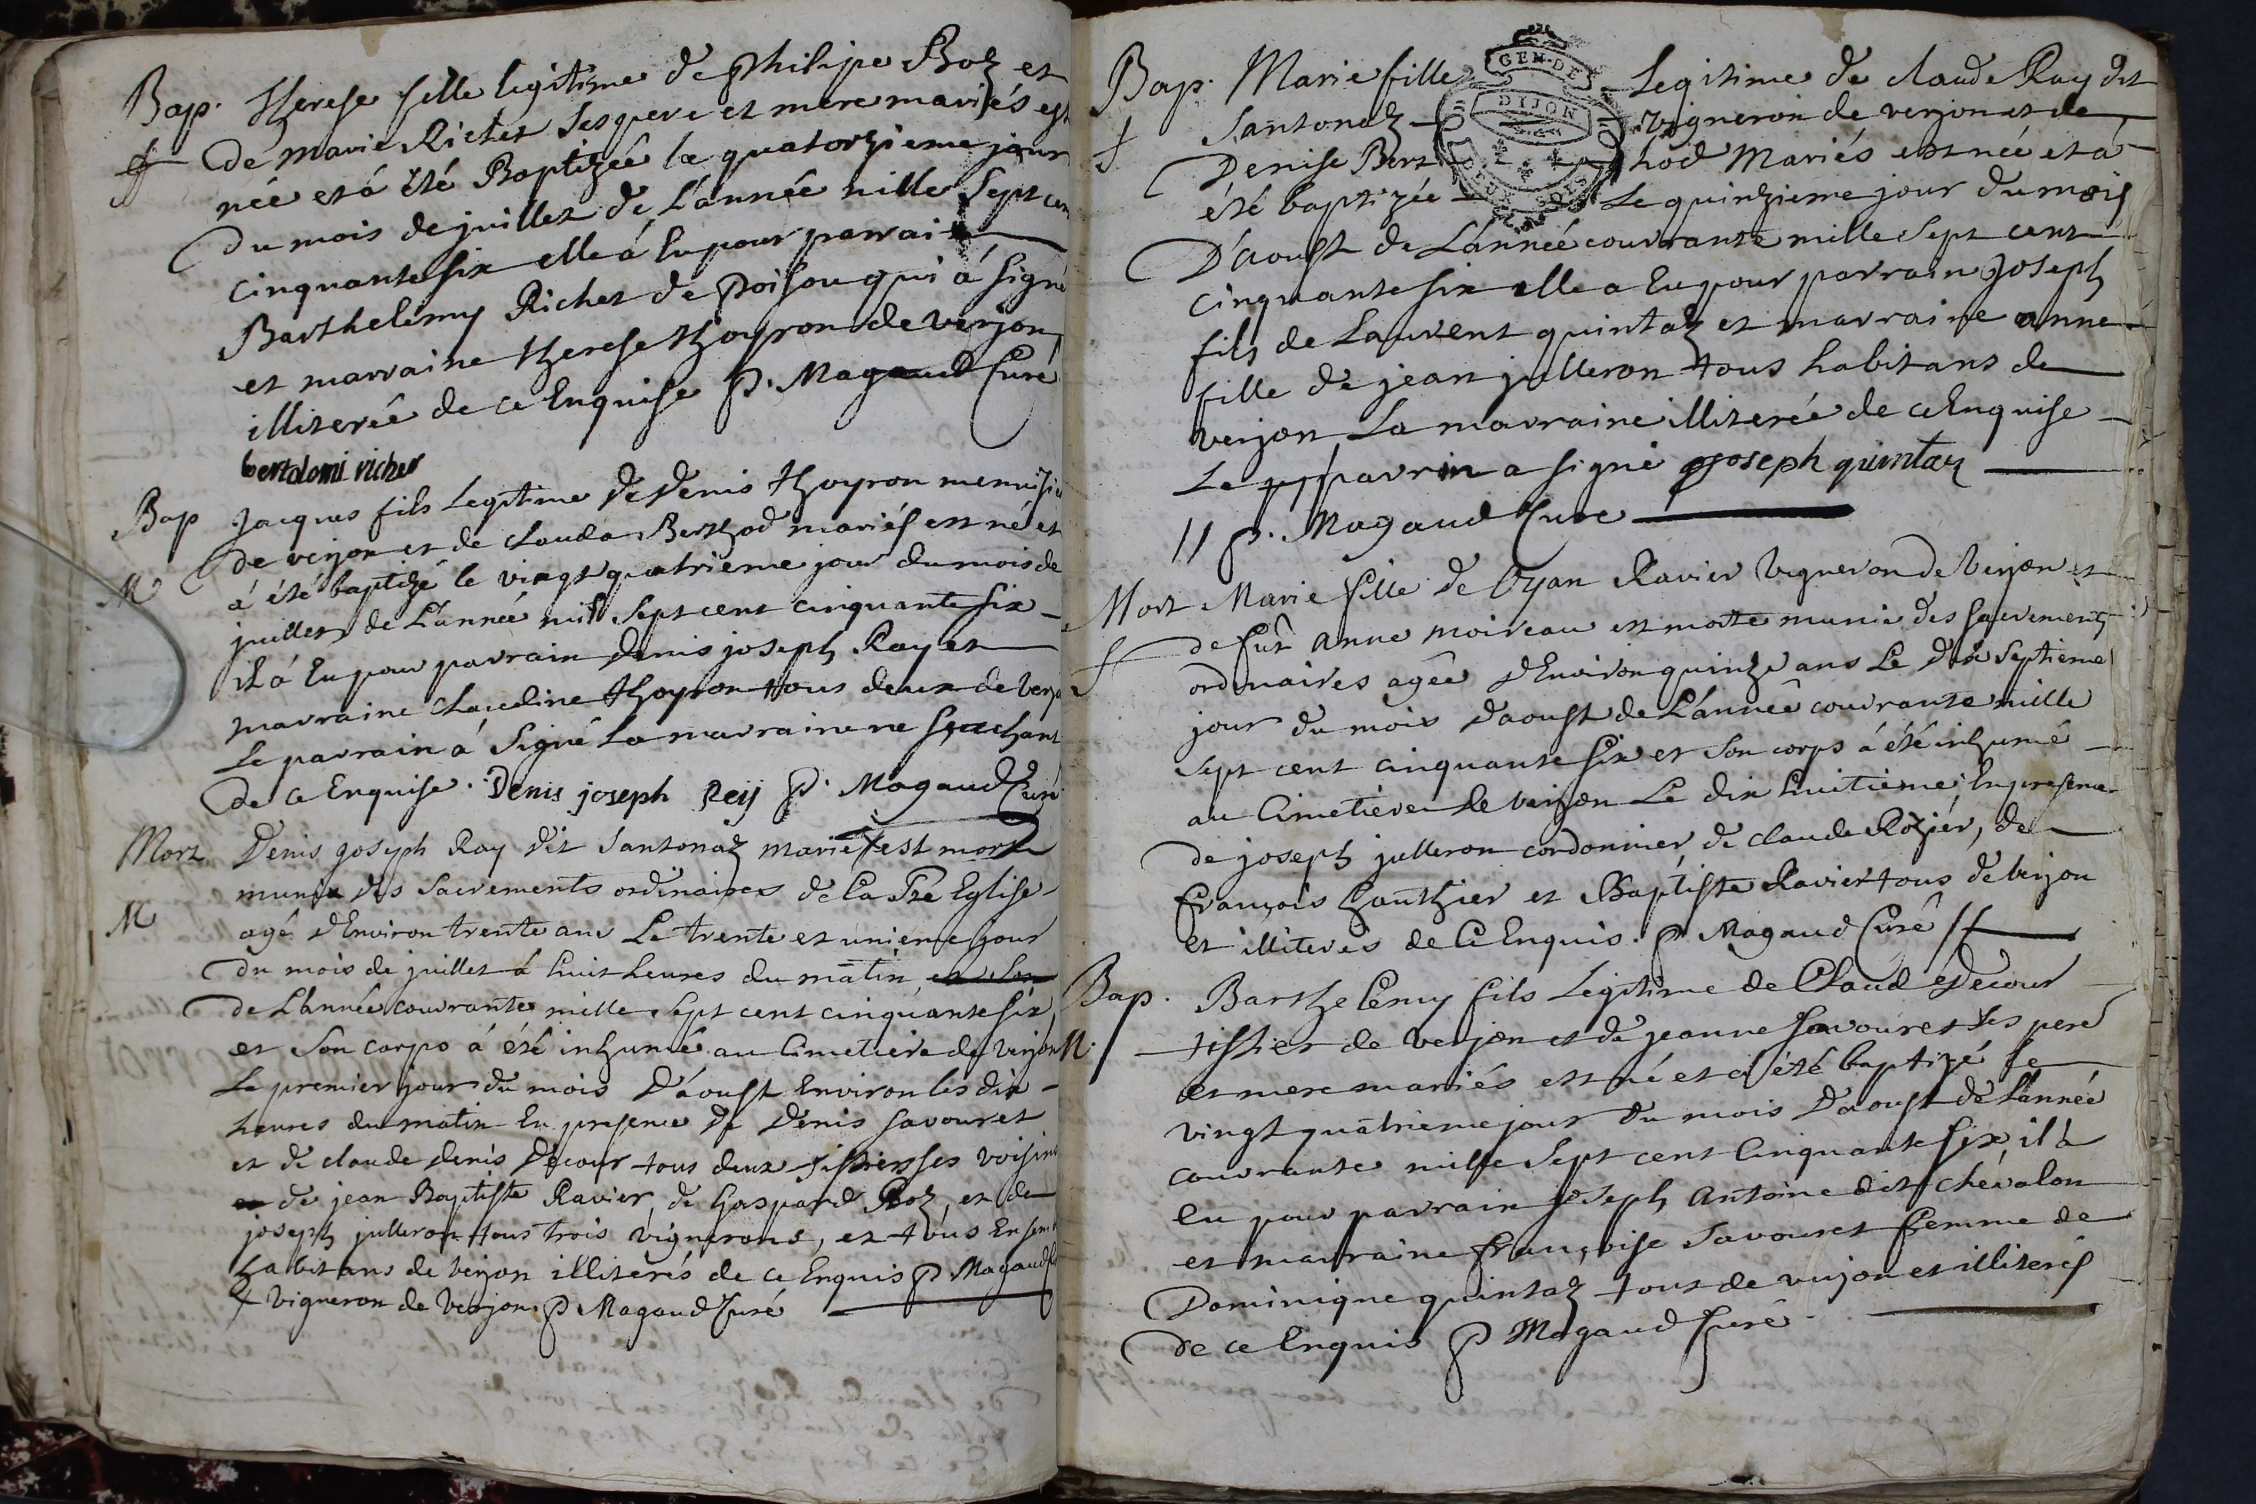 Bap. Therese fille legitime de Philipe Roz et
f de marie Richet ses pere et mere mariés est
née et á été Baptizeé le quatorzieme jour
du mois de juillet de L'année mille Sept cen
cinquante six elle á Eu pour parrain
Barthelemy Richet de Poisou qui á signé
et marraine therese thoyron de verjon
illiterée de ce Enquise P. Magaud Curé
bertolomi richer
Bap jacques fils Legitime de Denis thoyron menuisié
de verjon et de clauda Berthod mariés est né et
M á été baptizé le vingt quatrieme jour du mois de
juillet de L'année mil Sept cent cinquante six
il á Eu pour parrain denis joseph Ray et
marraine claudine thoyron tous deux de verjo
Le parrain á Signé La marraine ne sçachant
de ce Enquise. Denis joseph Reij P. Magaud Curé
Mort Denis joseph Ray dit Santonaz marié + est mort
muni des Sacrements ordinaires de La Ste Eglise
M agé d'Environ trente ans Le trente et unieme jour
du mois de juillet á huit heures du matin,
de L'année courrante mille Sept cent cinquante six,
et Son corps á été inhumé au Cimetiere de verjon
Le premier jour du mois D'áoust Environ les dix
heures du matin En presence de Denis Savouret
et de claude denis Decour tous deux tissiers ses voisins
de jean Baptiste Ravier, de Gaspard Roz, et de
joseph julleron tous trois vignerons, et tous Ensem
habitans de verjon illiterés de ce Enquis P Magaud C
+ vigneron de verjon. P Magaud Curé
Bap. Marie fille Legitime de claude Ray dit
f Santonaz vigneron de verjon et de
GEN. DE DIJON
Denise Bert hod Mariés est née et á
été baptizée Le quinzieme jour du mois
D'áoust de L'année courrante mille Sept cent
cinquante six elle a Eu pour parrain joseph
fils de Laurent quintaz et marraine anne
fille de jean julleron tous habitans de
verjon La marraine illiterée de ce Enquise
Le parrin a signé joseph quintaz
// P. Magaud Cure
Mort Marie fille de Oyan Ravier vigneron de verjon et
f defût anne moireau est morte munie des sacrements
ordinaires agée d'Environ quinze ans Le dix septieme
jour du mois daoust de L'année courrante mille
sept cent cinquante six et Son corps á été inhumé
au Cimetiere de verjon Le dix huitieme; En presence
de joseph julleron cordonnier, de claude Rozier, de
françois Gauthier et Baptiste Ravier tous de verjon
et illiterés de Ce Enquis. P Magaud Curé //
Bap. Barthelemy fils Legitime de Claude Decour
M. tissier de verjon et de jeanne Savouret ses pere
et mere mariés est né et á été baptizé le
vingt quatrieme jour du mois D'aoust de L'année
courrante mille Sept cent Cinquante six, il á
Eu pour parrain joseph Antoine dit chevalon
et marraine françoise Savouret femme de
Dominique quintaz tous de verjon et illiterés
de ce Enquis P Magaud Curé.